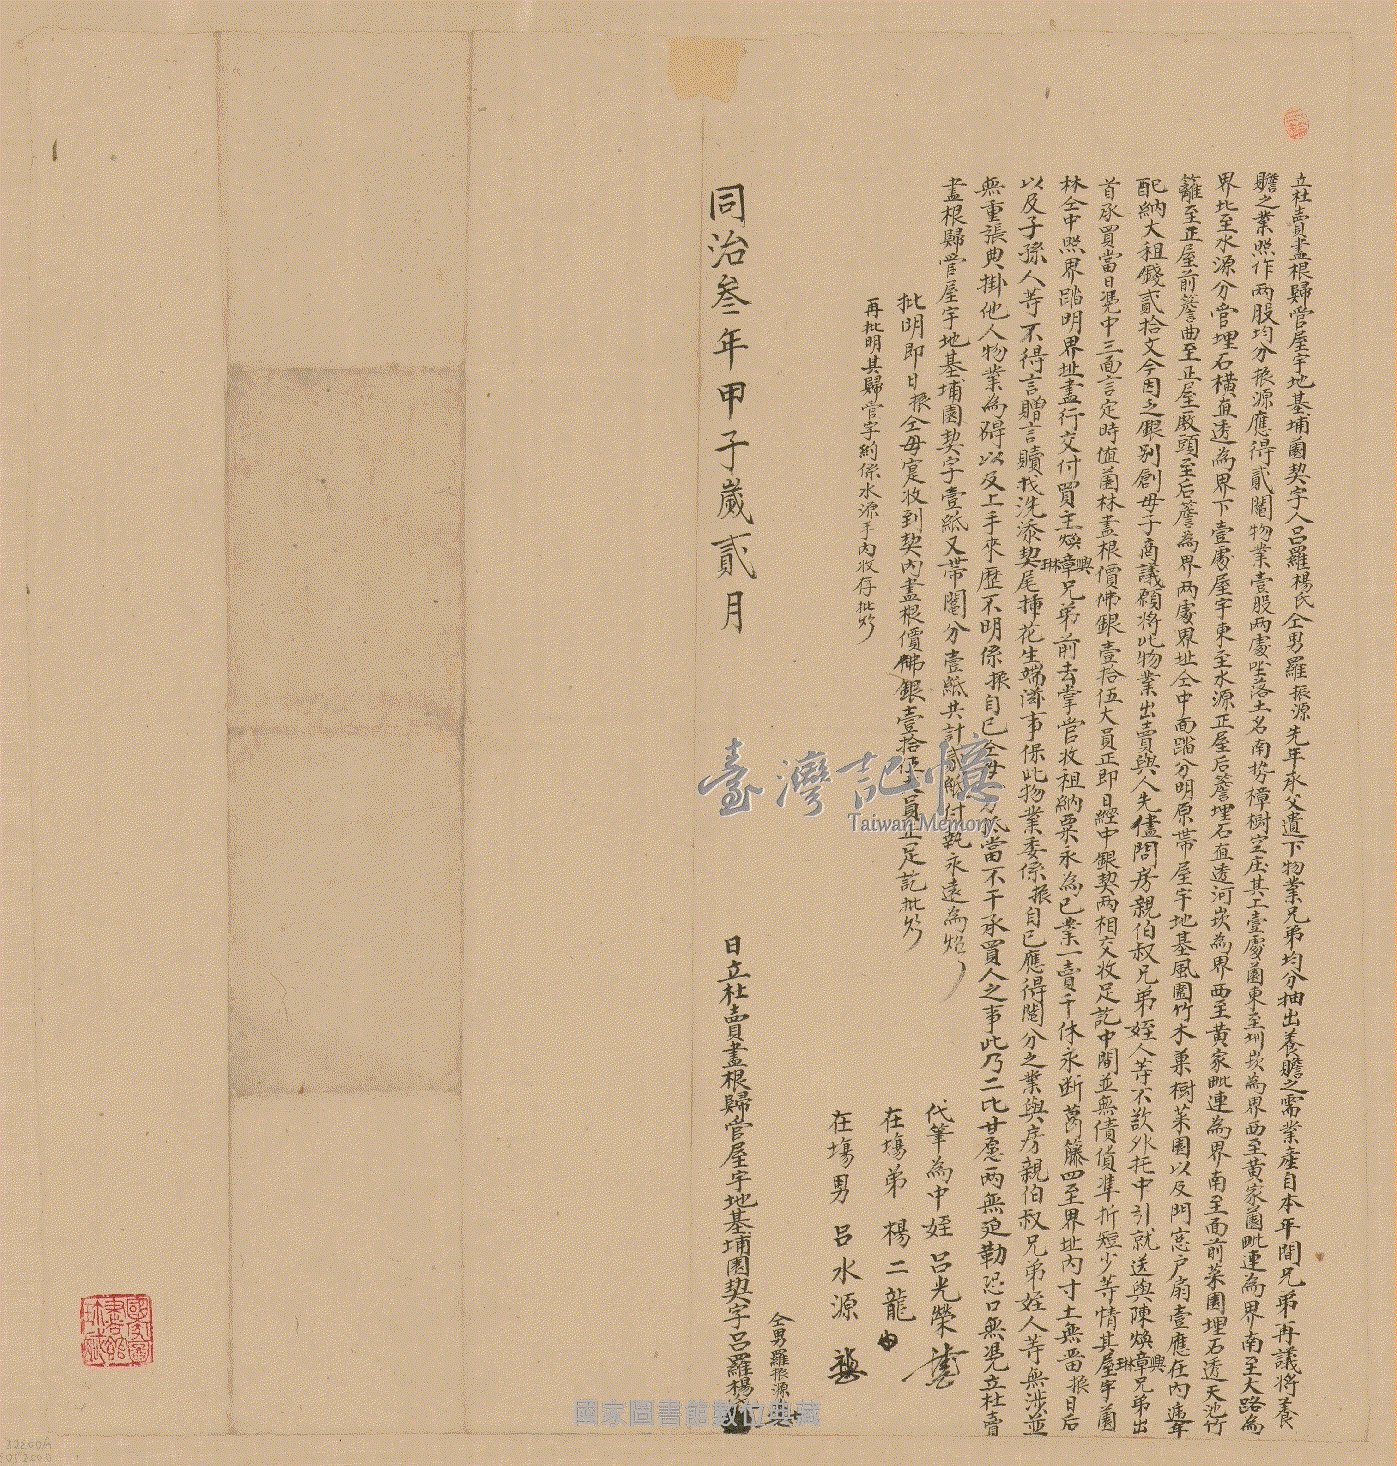 立杜賣盡根歸管屋宇地基埔園契字人呂羅楊氏仝男羅振源先年承父遺下物業兄弟均分抽出養贍之需業產自本年間兄弟再議將養
贍之業照作兩股均分振源應得貳鬮物業壹股兩處坐落土名南势樟樹空庄其上壹處園東至圳崁為界西至黃家園毗連為界南至大路為
界北至水源分管埋石橫直透為界下壹處屋宇東至水源正屋后簷埋石直透河崁為界西至黃家毗連為界南至面前菜園埋石透天池竹
籬至正屋前簷曲至正屋廒頭至后簷為界兩處界址仝中面踏分明原帶屋宇地基風圍竹木菓樹菜園以及門窓户扇壹應在內遞年
配納大租錢貳拾文今因乏銀別創母子商議愿將此物業出賣與人先儘問房親伯叔兄弟姪人等不欲外托中引就送與陳煥章興琳兄弟出
首承買當日憑中三面言定時值園林盡根價佛銀壹拾伍大員正即日經中銀契兩相交收足訖中間並無債貨準折短少等情其屋宇園
林仝中照界踏明界址盡行交付買主煥章興琳兄弟前去掌管收租納粟永為己業一賣千休永断葛籐四至界址內寸土無留振日后
以及子孫人等不得言贈言贖找洗添契尾揷花生端滋事保此物業委係振自己應得鬮分之業與房親伯叔兄弟姪人等無涉並
無重張典掛他人物業為碍以及上手來歷不明係振自己仝母抵當不干承買人之事此乃二比甘愿兩無迫勒恐口無凭立杜賣
盡根歸管屋宇地基埔園契字壹紙又帶鬮分壹紙共計貳紙付執永遠為炤
批明即日振仝母寔收到契內盡根價佛銀壹拾伍大員正足訖批炤
再批明其歸管字約係水源手內收存批炤
代筆為中姪 呂光榮
在塲弟 楊二龍
在塲男 呂水源
同治叄年甲子歲貳月 日立杜賣盡根歸管屋宇地基埔園契字呂羅楊
仝男羅振源
臺灣記憶
Taiwan Memory
國家圖書館數位典藏